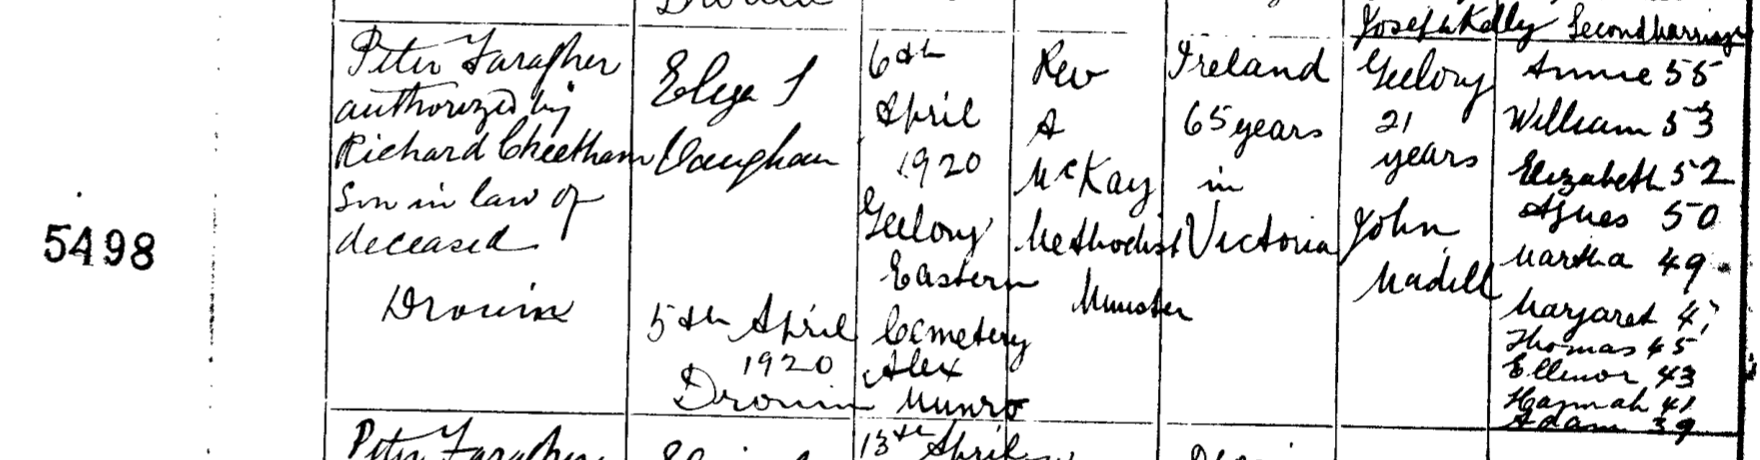 Joseph Kelly Second marriage
5498
Peter Faragher
authorized by
Richard Cheetham
Son in law of
deceased
Drouin
Eliza J
Vaughan
5th April
1920
Drouin
6th
April
1920
Geelong
Eastern
Cemetery
Alex
Munro
Rev
A
McKay
Methodist
Minister
Ireland
65 years
in
Victoria
Geelong
21
years
John
Madill
Annie 55
William 53
Elizabeth 52
Agnes 50
Martha 49
Margaret 47
Thomas 45
Ellenor 43
Hannah 41
Adam 39
Peter Faragher
13th April